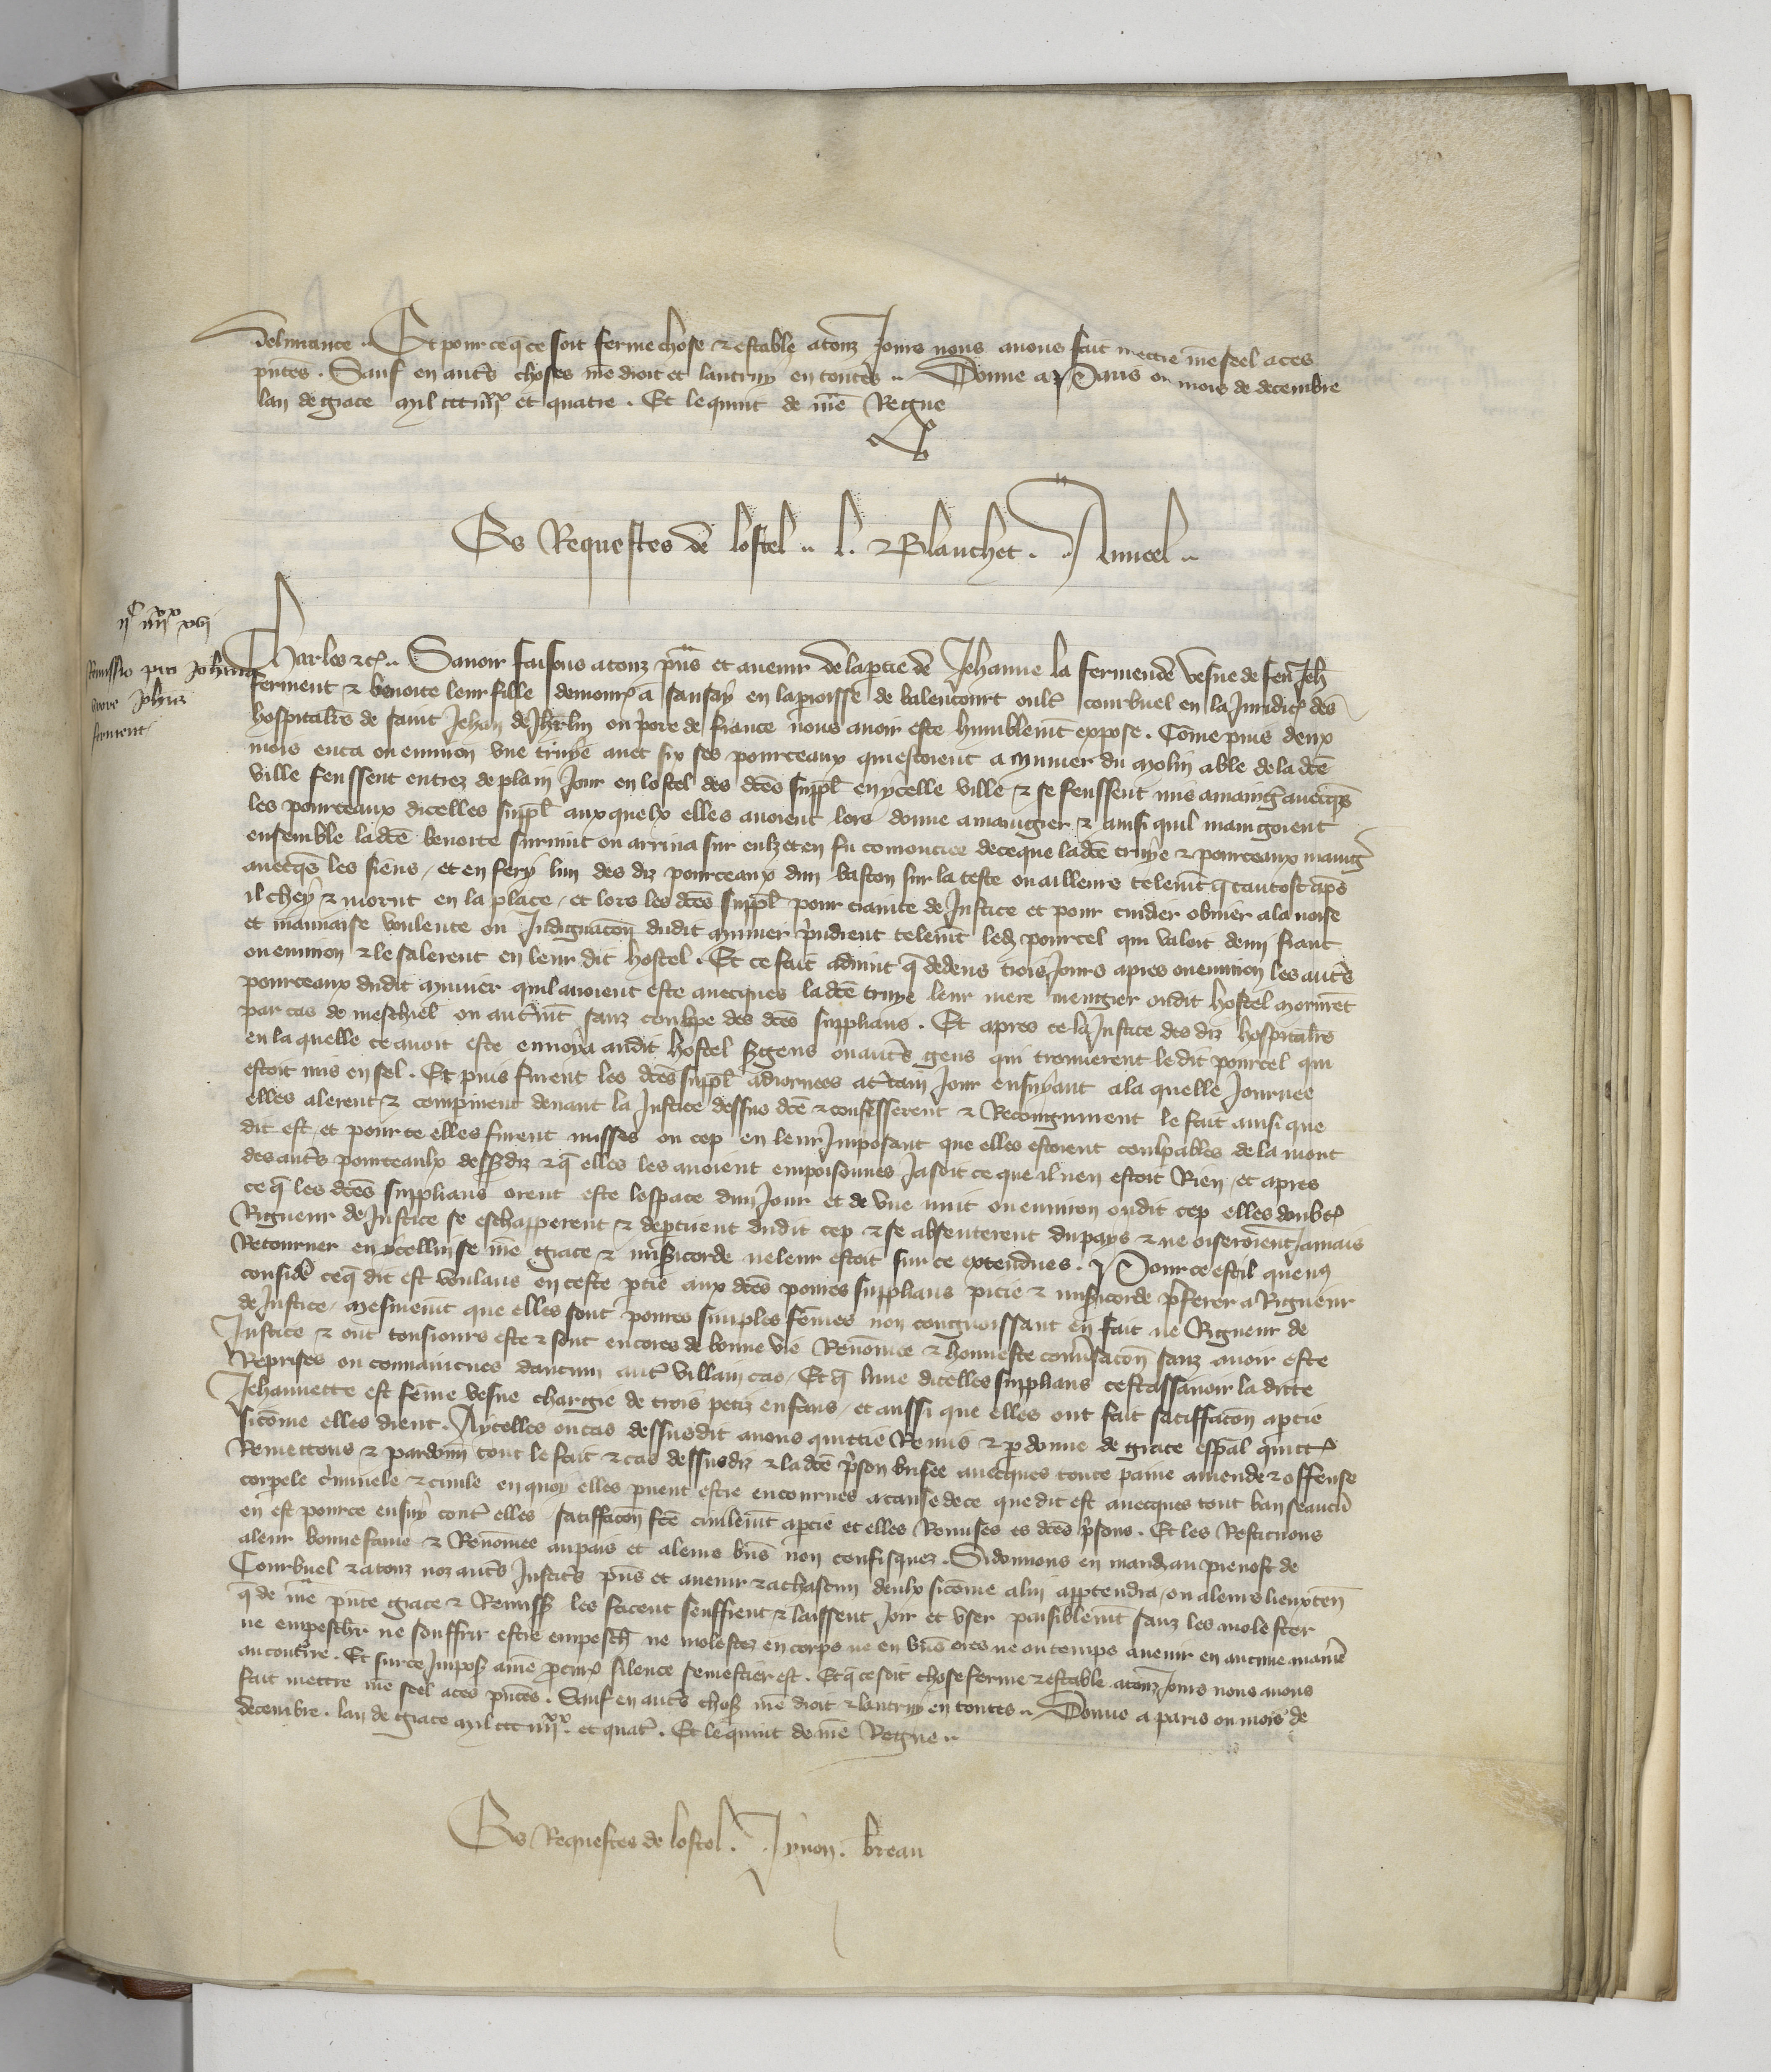 delivrance. Et pour ceq̃ ce soit ferme chose & estable a touz Jours nous avons fait mettre nr̃e seel a ces
pñtes. Sauf en autr̃s choses nr̃e droit et lautruy en toutes. Donne a Paris ou mois de decembre
lan de grace mil ccc iiiixx et quatre. Et le quint de nr̃e Regne
Es Requestes de lostel. l. Blanchet. Ancel.
iic iiiixx xvi
Remissio pro Johanna
uxore Johis
ferment
Charles &c. Savoir faisons a touz pñs et avenir de la ptie de Jehanne la fermende vefue de feu Jeh̃
ferment & benoite leur fille demour̃ a sansay en la proisse de balencourt oultr̃ courbueil en la Juridicc̃ des
hospitalr̃s de saint Jehan de Jhrl̃m ou p̃ore de france nous avoir este humblemt̃ expose. Com̃e puis deux
mois enca ou environ une truye avec six ses pourceaux qui estoient a munier du molin a ble de la dc̃e
ville feussent entrez de plain Jour en lostel des dc̃es suppl̃ en ycelle ville & se feussent mis a maingr̃ avecqs̃
les pourceaux dicelles suppl̃ aux quelx elles avoient lors donne a maingier & ainsi quil maingoient
ensemble la dc̃e benoite survint ou arriva sur eulz et en fu comouvee de ce que la dc̃e truye & pourceaux maingr̃
avecqs̃ les siens, et en fery lun des diz pourceaux dun baston sur la teste ou ailleurs telemt̃ q̃ tantost ap̃s
il chey & morut en la place, et lors les dc̃es suppl̃ pour crainte de Justice et pour cuidier obvier a la noise
et mauvaise voulente ou Indignacõn dudit munier prindrent telemt̃ led̃ pourcel qui valoit demi franc
ou environ & le salerent en leur dit hostel. Et ce fait advint q̃ dedens trois Jours apres ou environ les autr̃s
pourceaux dudit munier quil avoient este avecques la dc̃e truye leur mere mengier oudit hostel morurẽt
par cas de meschief ou autremt̃ sanz coulpe des dc̃es supplians. Et apres ce la Justice des diz hospitalr̃s
en la quelle ce avoit este envoya audit hostel sr̃gens ou autr̃s gens qui trouverent le dit pourcel qui
estoit mis en sel. Et puis furent les dc̃es suppl̃ adiornees a certain Jour ensuyvant a la quelle Journee
elles alerent & comprirent devant la Justice dessus dc̃e & confesserent & Recongnurent le fait ainsi que
dit est, et pour ce elles furent mises ou cep en leur Imposant que elles estoient coulpables de la mort
des autr̃s pourceaulx dessus diz & q̃ elles les avoient empoisonnes Ja soit ce que il nen estoit Rien, et apres
ceq̃ les dc̃es supplians orent este lespace dun Jour et de une nuit ou environ oudit cep elles doubt̃
Rigueur de Justice se eschapperent & deptirent dudit cep & se absenterent du pays & ne oiseroient Jamais
Retourner en ycellui se nr̃e grace & misr̃icorde ne leur estoit sur ce extendues. Pour ce est il que nꝰ
consider̃ ceq̃ dit est voulans en ceste ptie aux dc̃es povres supplians pitie & misr̃icorde pr̃ferer a Rigueur
de Justice, mesmemt̃ que elles sont povres simples fem̃es non congnoissant en fait ne Rigueur de
Justice & ont tousiours este & sont encores de bonne vie Renom̃ee & honneste conversacõn sanz avoir este
Reprises ou convaincues daucun autr̃ villain cas. Et q̃ lune dicelles supplians cest assavoir la ditte
Jehannette est fem̃e vefue chargie de trois petiz enfans, et aussi que elles ont fait satisfacõn a ptie
sicom̃e elles dient. A ycelles ou cas dessusdit avons quittie Remis & pdonne de grace esp̃al quitt̃
Remettons & pardonn̈ tout le fait & cas dessusdiz & la dc̃e pr̃son brisee avecques toute paine amende & offense
corpele cr̃iminele & civile en quoy elles pvent estre encourues a cause de ce que dit est avecques tout ban se aucũ
en est pour ce ensuy contr̃ elles, satisfacõn fc̃e civilemt̃ a ptie et elles Remises es dc̃es pr̃sons. Et les Restituons
a leur bonne fame & Renom̃ee au pais et a leurs biẽs non confisquez. Si donnons en mand̃ au prevost de
Courbueil & a touz noz autr̃s Justic̃s pñs et avenir & a chascun deulx sicom̃e a lui apptendra, ou a leurs lieuxteñ
q̃ de nr̃e pñte grace & Remiss̃ les facent seuffrent & laissent Joir et user paisiblemt̃ sanz les molester
ne empeschr̃ ne souffrir estre empesch̃ ne molestez en corps ne en biẽs ores ne ou temps avenir en aucune manr̃e
au contr̃re. Et sur ce Impos̃ a nr̃e pcur̃ silence se mestier est. Et q̃ ce soit chose ferme & estable a touz Jours nous avons
fait mettre nr̃e seel a ces pñtes. Sauf en autr̃s chos̃ nr̃e droit & lautruy en toutes. Donne a paris ou mois de
decembre. lan de grace mil ccc iiiixx. et quatr̃. Et le quint de nr̃e Regne.
Es Requestes de lostel. Jvion. breau